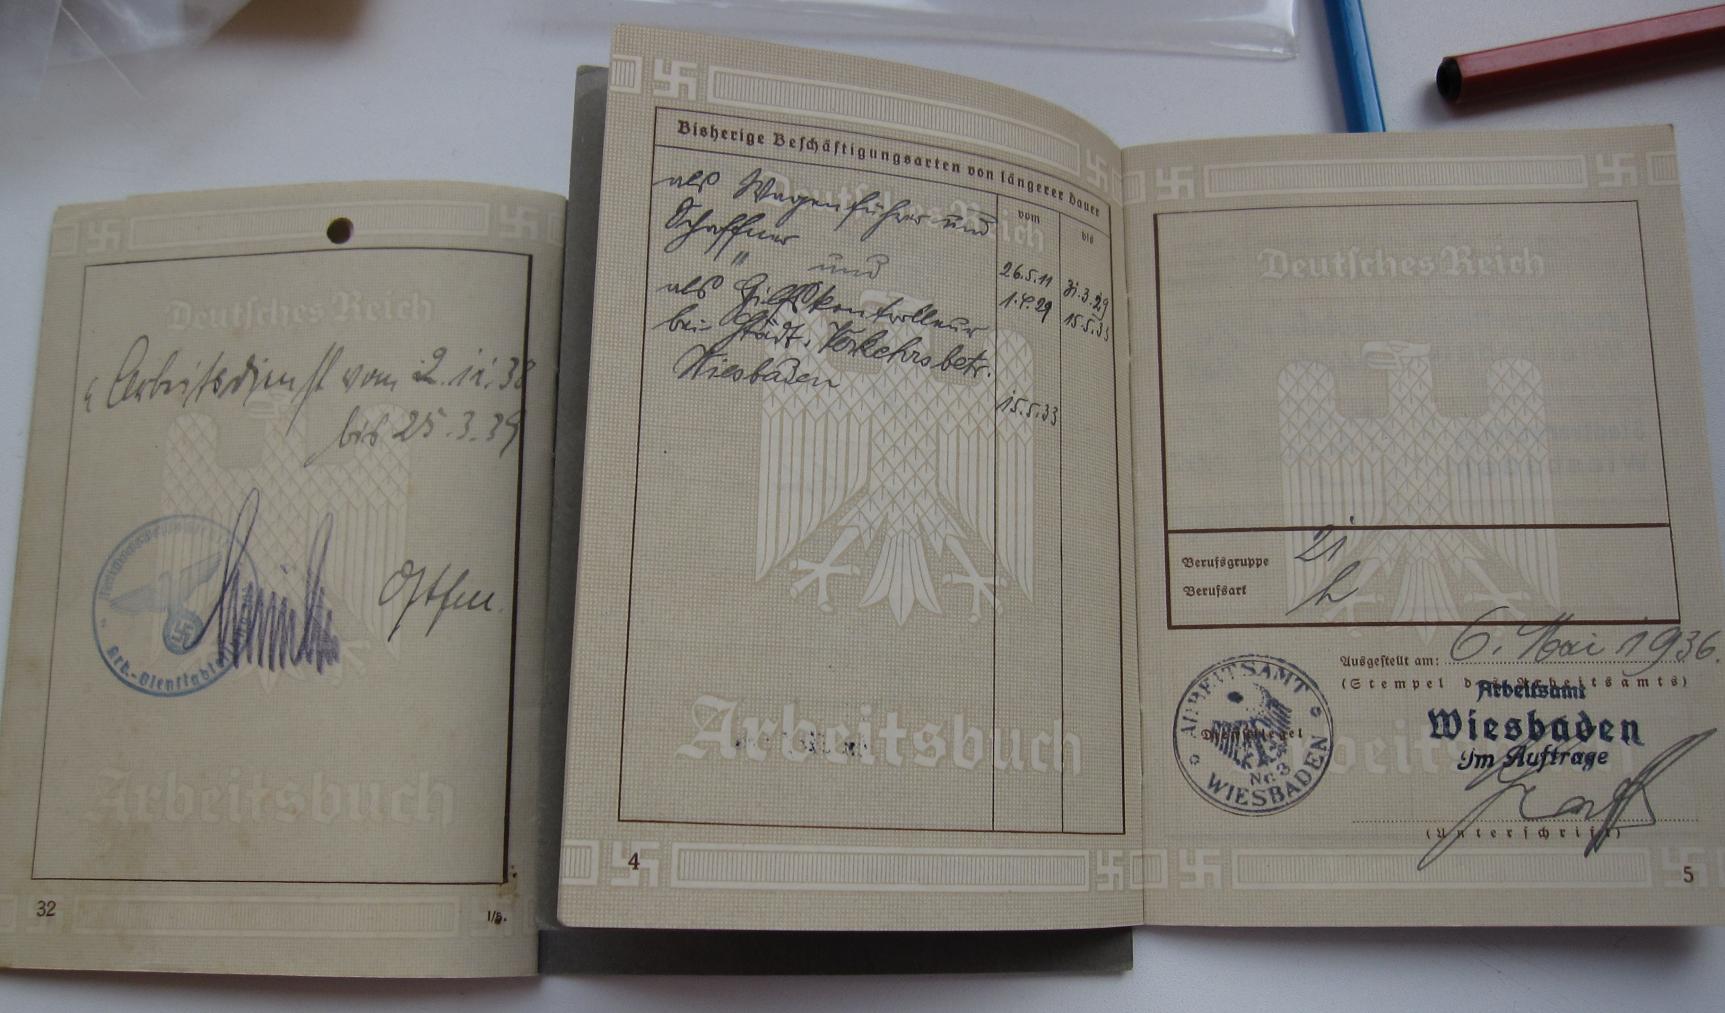 Deutsches Reich
Arbeitsdienst vom 2.11.38
bis 25.3.39
Arb.-Dienstabteilung
Arbeitsbuch
32
Bisherige Beschäftigungsarten von längerer Dauer
vom
bis
Deutsches Reich
als Wagenführer und
Schaffner
26.5.11
31.3.29
" und
1.4.29
15.5.33
als Hilfskontrolleur
bei Städt. Verkehrsbetr.
Wiesbaden
15.5.33
Arbeitsbuch
4
Deutsches Reich
Berufsgruppe 21
Berufsart
Ausgestellt am: 6. Mai 1936.
(Stempel des Arbeitsamts)
Arbeitsamt
Wiesbaden
Im Auftrage
ARBEITSAMT
Dienstsiegel
Nr. 3
WIESBADEN
(Unterschrift)
5